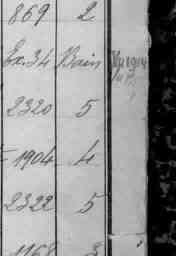 869 2
Ex. 34 Bain
2320 5
1904 4
2322 5
1168 3